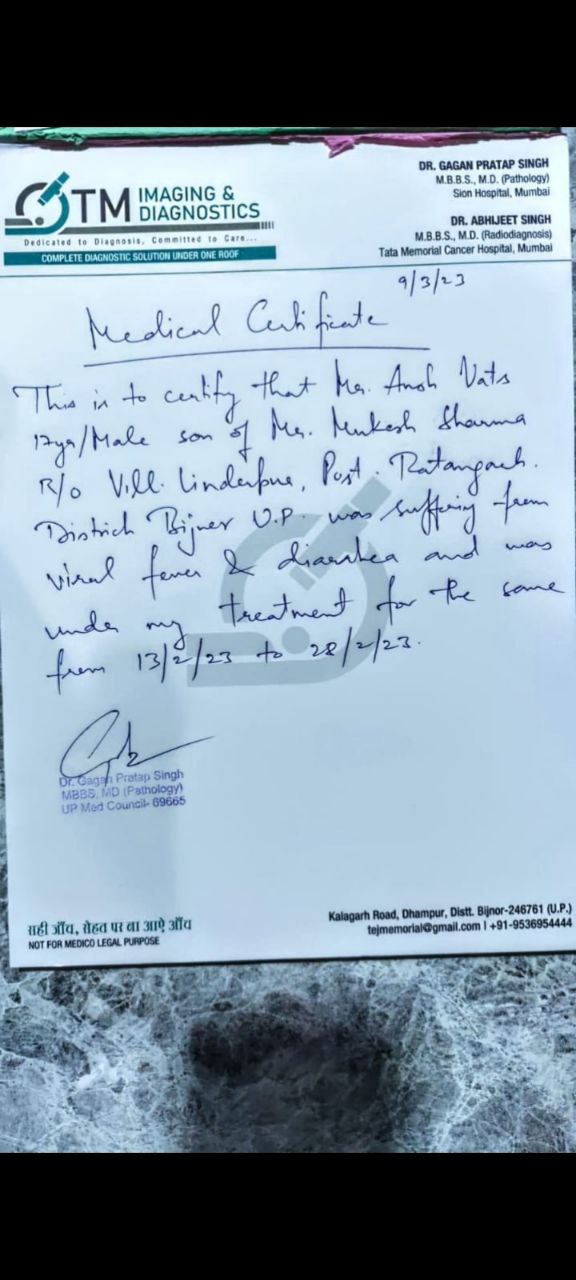 TM IMAGING & DIAGNOSTICS
Dedicated to Diagnosis, Committed to Care...
COMPLETE DIAGNOSTIC SOLUTION UNDER ONE ROOF
DR. GAGAN PRATAP SINGH
M.B.B.S., M.D. (Pathology)
Sion Hospital, Mumbai
DR. ABHIJEET SINGH
M.B.B.S., M.D. (Radiodiagnosis)
Tata Memorial Cancer Hospital, Mumbai
9/3/23
Medical Certificate
This is to certify that Mr. Ansh Vats
17yr/Male son of Mr. Mukesh Sharma
R/o Vill. Post.
District Bijnor U.P. was suffering from
viral fever & diarrhea and was
under my treatment for the same
from 13/2/23 to 28/2/23.
Dr. Gagan Pratap Singh
MBBS, MD (Pathology)
UP Med Council- 69665
सही जाँच, सेहत पर ना आऐ आँच
NOT FOR MEDICO LEGAL PURPOSE
Kalagarh Road, Dhampur, Distt. Bijnor-246761 (U.P.)
tejmemorial@gmail.com I +91-9536954444